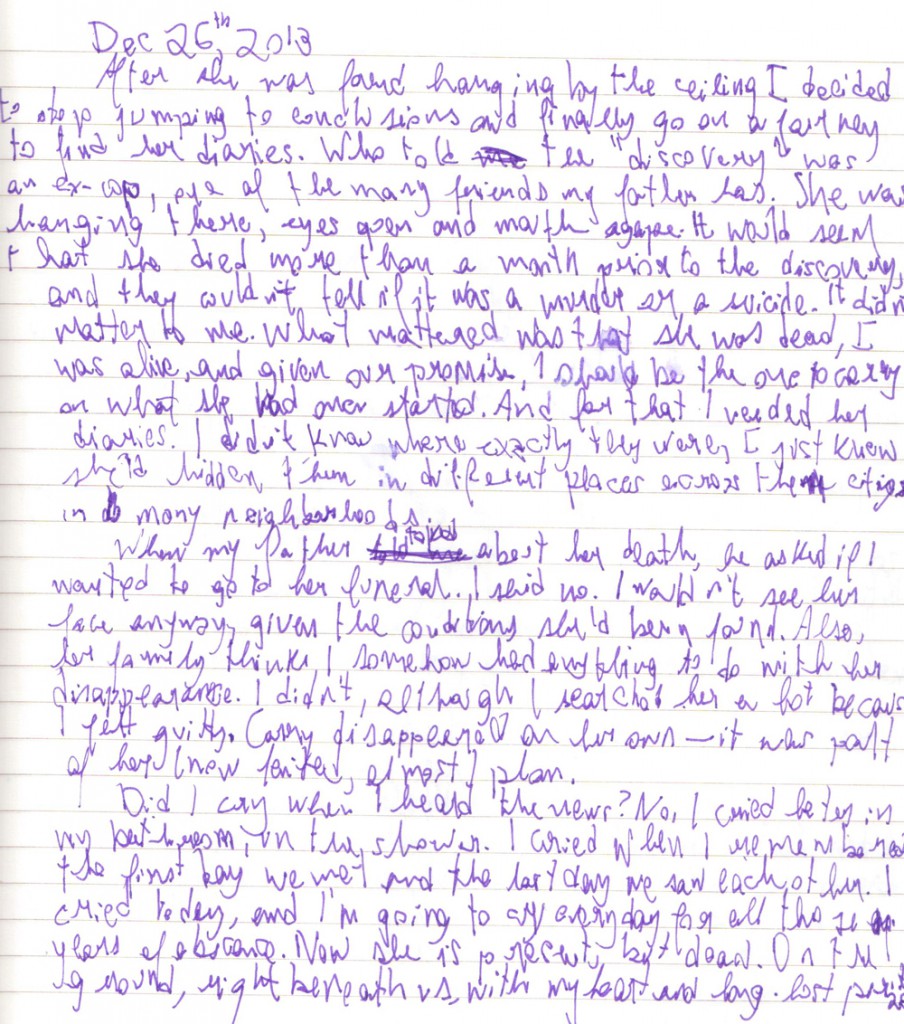 Dec 26th, 2013
After she was found hanging by the ceiling I decided
to stop jumping to conclusions and finally go on a journey
to find her diaries. Who told the "discovery" was
an ex-cop, one of the many friends my father has. She was
hanging there, eyes open and mouth agape. It would seem
that she died more than a month prior to the discovery,
and they couldn't tell if it was a murder or a suicide. It didn't
matter to me. What mattered was that she was dead, I
was alive, and given our promise, I should be the one to carry
on what she had once started. And for that I needed her
diaries. I didn't know where exactly they were, I just knew
she'd hidden them in different places across the cities
in many neighborhoods.
When my father told about her death, he asked if I
wanted to go to her funeral. I said no. I wouldn't see her
face anyway, given the conditions she'd been found. Also,
her family thinks I somehow had anything to do with her
disappearance. I didn't, although I searched her a lot because
I felt guilty. Carry disappeared on her own — it was part
of her (now almost) plan.
Did I cry when I heard the news? No, I cried later in
my bathroom, in the shower. I cried when I remembered
the first day we met and the last day we saw each other. I
cried today, and I'm going to cry everyday for all those
years of absence. Now she is present, but dead. On the
ground, right beneath us, with my heart and long-lost